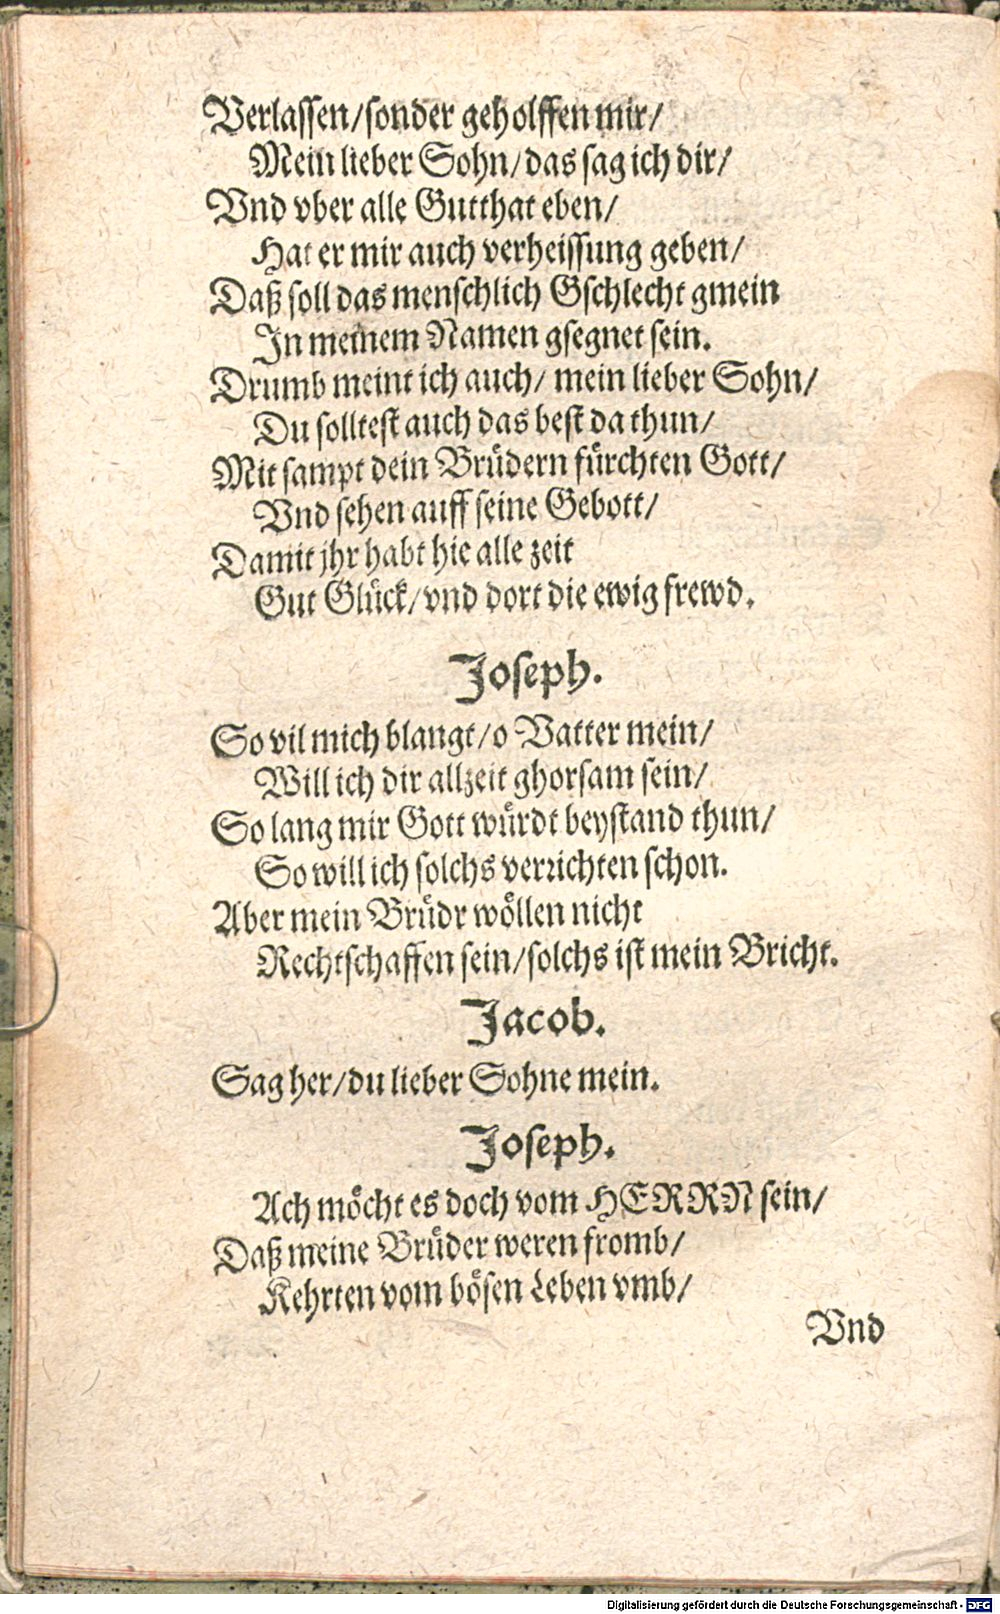 Verlassen/sonder geholffen mir/
Mein lieber Sohn/das sag ich dir/
Vnd vber alle Gutthat eben/
Hat er mir auch verheissung geben/
Daß soll das menschlich Gschlecht gmein
In meinem Namen gsegnet sein.
Drumb meint ich auch/ mein lieber Sohn/
Du solltest auch das best da thun/
Mit sampt dein Brüdern fürchten Gott/
Vnd sehen auff seine Gebott/
Damit jhr habt hie alle zeit
Gut Glück/vnd dort die ewig frewd.
Joseph.
So vil mich blangt/o Vatter mein/
Will ich dir allzeit ghorsam sein/
So lang mir Gott würdt beystand thun/
So will ich solchs verrichten schon.
Aber mein Brüdr wöllen nicht
Rechtschaffen sein/solchs ist mein Bricht.
Jacob.
Sag her/du lieber Sohne mein.
Joseph.
Ach möcht es doch vom HERRN sein/
Daß meine Brüder weren fromb/
Kehrten vom bösen Leben vmb/
Vnd
Digitalisierung gefördert durch die Deutsche Forschungsgemeinschaft - DFG